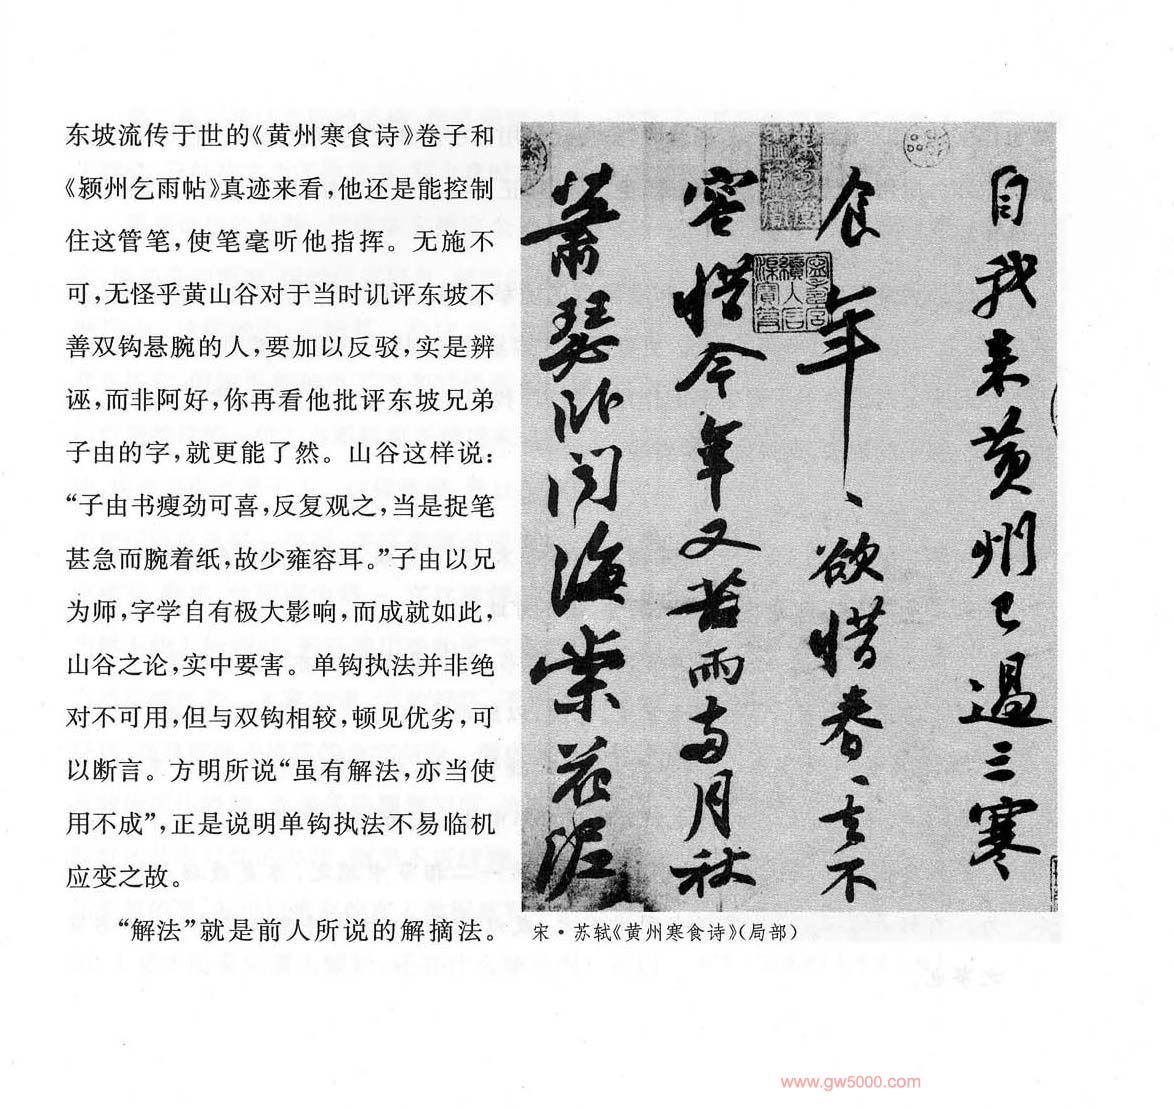 东坡流传于世的《黄州寒食诗》卷子和
《颍州乞雨帖》真迹来看，他还是能控制
住这管笔，使笔毫听他指挥。无施不
可，无怪乎黄山谷对于当时讥评东坡不
善双钩悬腕的人，要加以反驳，实是辨
诬，而非阿好，你再看他批评东坡兄弟
子由的字，就更能了然。山谷这样说：
“子由书瘦劲可喜，反复观之，当是捉笔
甚急而腕着纸，故少雍容耳。”子由以兄
为师，字学自有极大影响，而成就如此，
山谷之论，实中要害。单钩执法并非绝
对不可用，但与双钩相较，顿见优劣，可
以断言。方明所说“虽有解法，亦当使
用不成”，正是说明单钩执法不易临机
应变之故。
“解法”就是前人所说的解摘法。
自我来黄州已過三寒
食年、欲惜春、去不
容惜今年又苦雨兩月秋
蕭瑟卧闻海棠花泥
宋·苏轼《黄州寒食诗》（局部）
www.gw5000.com